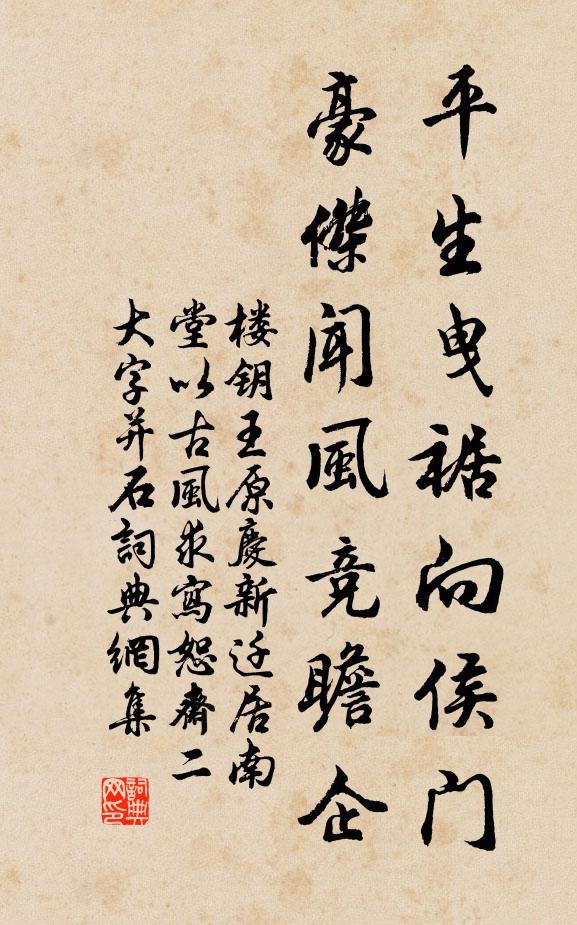 平生曳裾向侯門
豪傑聞風竞瞻企
楼钥王原慶新迁居南
堂以古風求寫恕齋二
大字并石詞典網集
詞典网印